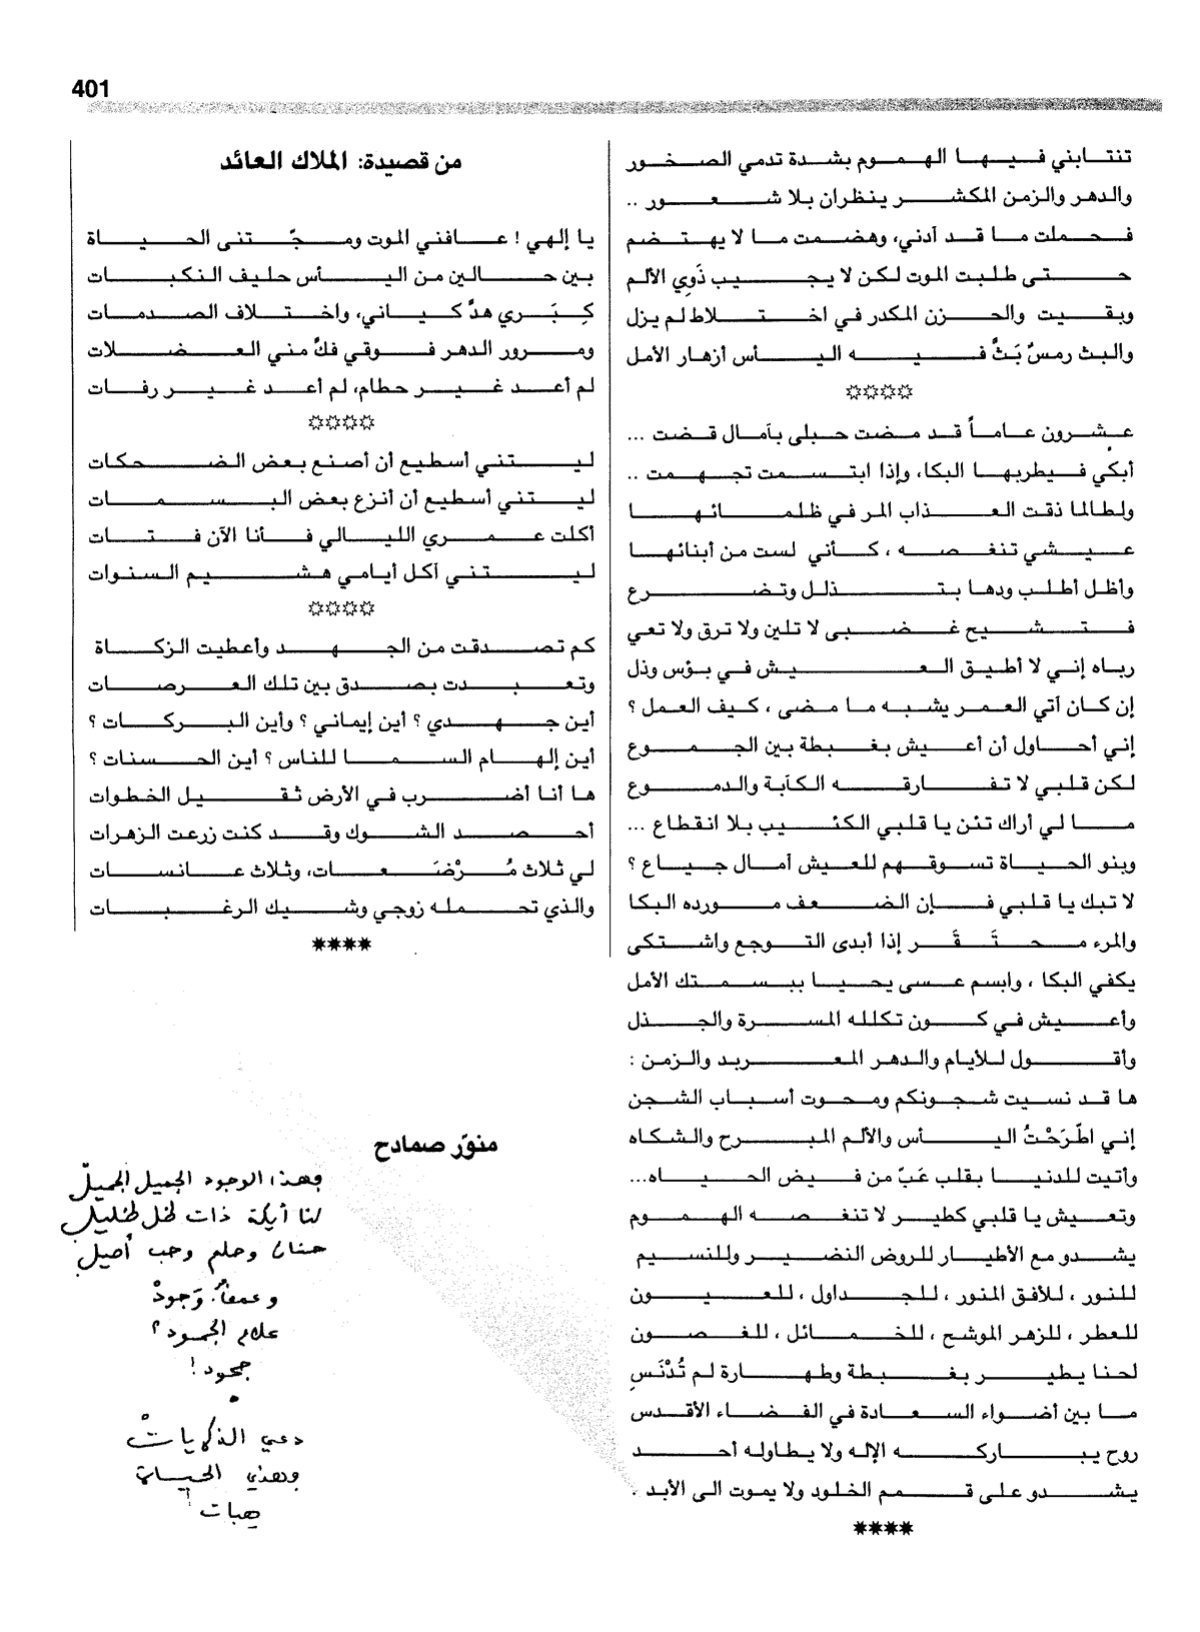 401
تنتابني فيها الهموم بشدة تدمي الصخور
والدهر والزمن المكشر ينظران بلا شعور ..
فحملت ما قد آدني، وهضمت ما لا يهتضم
حتى طلبت الموت لكن لا يجيب ذَوِي الألم
وبقيت والحزن المكدر في اختلاط لم يزل
والبث رمسٌ بَثَّ فيه اليأس أزهار الأمل
عشرون عاماً قد مضت حبلى بآمال قضت ...
أبكي فيطربها البكا، وإذا ابتسمت تجهمت ..
ولطالما ذقت العذاب المر في ظلمائها
عيشي تنغصه ، كأني لست من أبنائها
وأظل أطلب ودها بتذلل وتضرع
فتشيح غضبى لا تلين ولا ترق ولا تعي
رباه إني لا أطيق العيش في بؤس وذل
إن كان آتي العمر يشبه ما مضى ، كيف العمل ؟
إني أحاول أن أعيش بغبطة بين الجموع
لكن قلبي لا تفارقه الكآبة والدموع
ما لي أراك تئن يا قلبي الكئيب بلا انقطاع ...
وبنو الحياة تسوقهم للعيش آمال جياع ؟
لا تبك يا قلبي فإن الضعف مورده البكا
والمرء محتَقَر إذا أبدى التوجع واشتكى
يكفي البكا ، وابسم عسى يحيا ببسمتك الأمل
وأعيش في كون تكلله المسرة والجذل
وأقول للأيام والدهر المعربد والزمن :
ها قد نسيت شجونكم ومحوت أسباب الشجن
إني اطّرَحْتُ اليأس والألم المبرح والشكاه
وأتيت للدنيا بقلب عَبّ من فيض الحياه...
وتعيش يا قلبي كطير لا تنغصه الهموم
يشدو مع الأطيار للروض النضير وللنسيم
للنور ، للأفق المنور ، للجداول ، للعيون
للعطر ، للزهر الموشح ، للخمائل ، للغصون
لحنا يطير بغبطة وطهارة لم تُدْنَسِ
ما بين أضواء السعادة في الفضاء الأقدس
روح يباركه الإله ولا يطاوله أحد
يشدو على قمم الخلود ولا يموت الى الأبد .
****
من قصيدة: الملاك العائد
يا إلهي ! عافني الموت ومجّتنى الحياة
بين حالين من اليأس حليف النكبات
كِبَري هدَّ كياني، واختلاف الصدمات
ومرور الدهر فوقي فكَّ مني العضلات
لم أعد غير حطام، لم أعد غير رفات
ليتني أسطيع أن أصنع بعض الضحكات
ليتني أسطيع أن أنزع بعض البسمات
أكلت عمري الليالي فأنا الآن فتات
ليتني آكل أيامي هشيم السنوات
كم تصدقت من الجهد وأعطيت الزكاة
وتعبدت بصدق بين تلك العرصات
أين جهدي ؟ أين إيماني ؟ وأين البركات ؟
أين إلهام السما للناس ؟ أين الحسنات ؟
ها أنا أضرب في الأرض ثقيل الخطوات
أحصد الشوك وقد كنت زرعت الزهرات
لي ثلاث مُرْضَعات، وثلاث عانسات
والذي تحمله زوجي وشيك الرغبات
****
منوّر صمادح
وهذا الوجود الجميل الجميلْ
لنا أيكة ذات ظل ظليل
حنان وحلم وحب أصيل
وعمقاً وَجودْ
علام الجمود ؟
جحود !
دعي الذكرياتْ
وهذي الحياة
هبات !